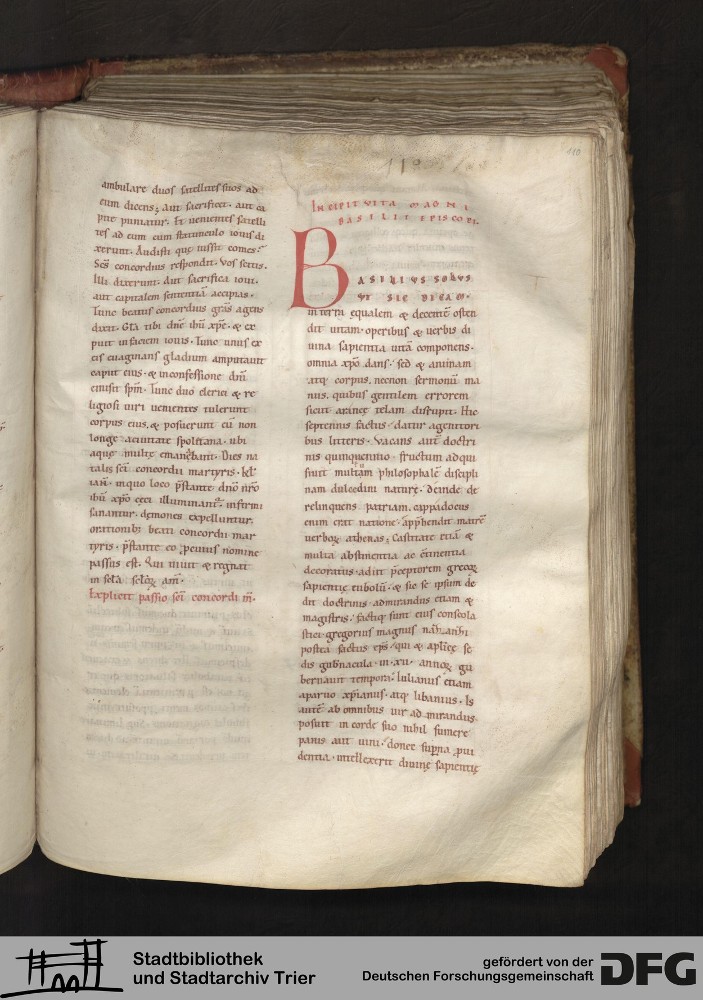 110
ambulare duos satellites suos ad
eum dicens; aut sacrificet, aut ca
pite puniatur. Et uenientes satelli
tes ad eum cum statunculo iouis di
xerunt. Audisti quę iussit comes?
Scs concordius respondit. Vos scitis.
Illi dixerunt. aut sacrifica ioui.
aut capitalem sententiā accipias.
Tunc beatus concordius gras agens
dixit. Gla tibi dne ihu xpe. & ex
puit in faciem iouis. Tunc unus ex
eis euaginans gladium amputauit
caput eius. & in confessione dni
emisit spm. Tunc duo clerici & re
ligiosi uiri uenientes tulerunt
corpus eius, & posuerunt eū non
longe a ciuitate spoletana. ubi
aquę multę emanabant. Dies na
talis sci concordii martyris. kl
ian. in quo loco pstante dno nro
ihu xpo ceci illuminant, infirmi
sanantur. demones expelluntur.
orationib; beati concordii mar
tyris. pstante eo p cuius nomine
passus est. Qui uiuit & regnat
in scla sclor am.
Explicit passio sci concordi m.
INCIPIT VITA
BASILII EPISCOPI.
BASILIUS SOBUS
UT SIC DICAM.
in terri ęqualem & decentē osten
dit uitam. operibus & uerbis di
uina sapientia uitā componens.
omnia xpo dans. sed & animam
atq corpus. necnon sermonū ma
nus. quibus gentilem errorem
sicut aranee telam disrupit. Hic
septennis factus. datur a genitori
bus litteris. Vacans aut doctri
nis quinquennio. fructum adqui
siuit multam philosophalē discipli
nam dulcedini naturę. deinde de
relinquens patriam. cappadocus
enim erat natione. apphendit matrē
uerbor athenas; Castitate etiā &
multa abstinentia ac ctinentia
decoratus. adiit pceptorem grecor
sapientię eubolū. & sic se ipsum de
dit doctrinis. admirandus etiam &
magistris. factiq sunt eius conscola
stici gregorius magnus
postea factus eps. qui & aplice se
dis gubnacula. in xii. annor gu
bernauit tempora. Iulianus etiam
a paruo xpianus. atq libanius. Is
autē ab omnibus uir admirandus.
posuit in corde suo nihil sumere
panis aut uini. donec supna pui
dentia. intellexerit diuinę sapientię
Stadtbibliothek
und Stadtarchiv Trier
gefördert von der
Deutschen Forschungsgemeinschaft
DFG